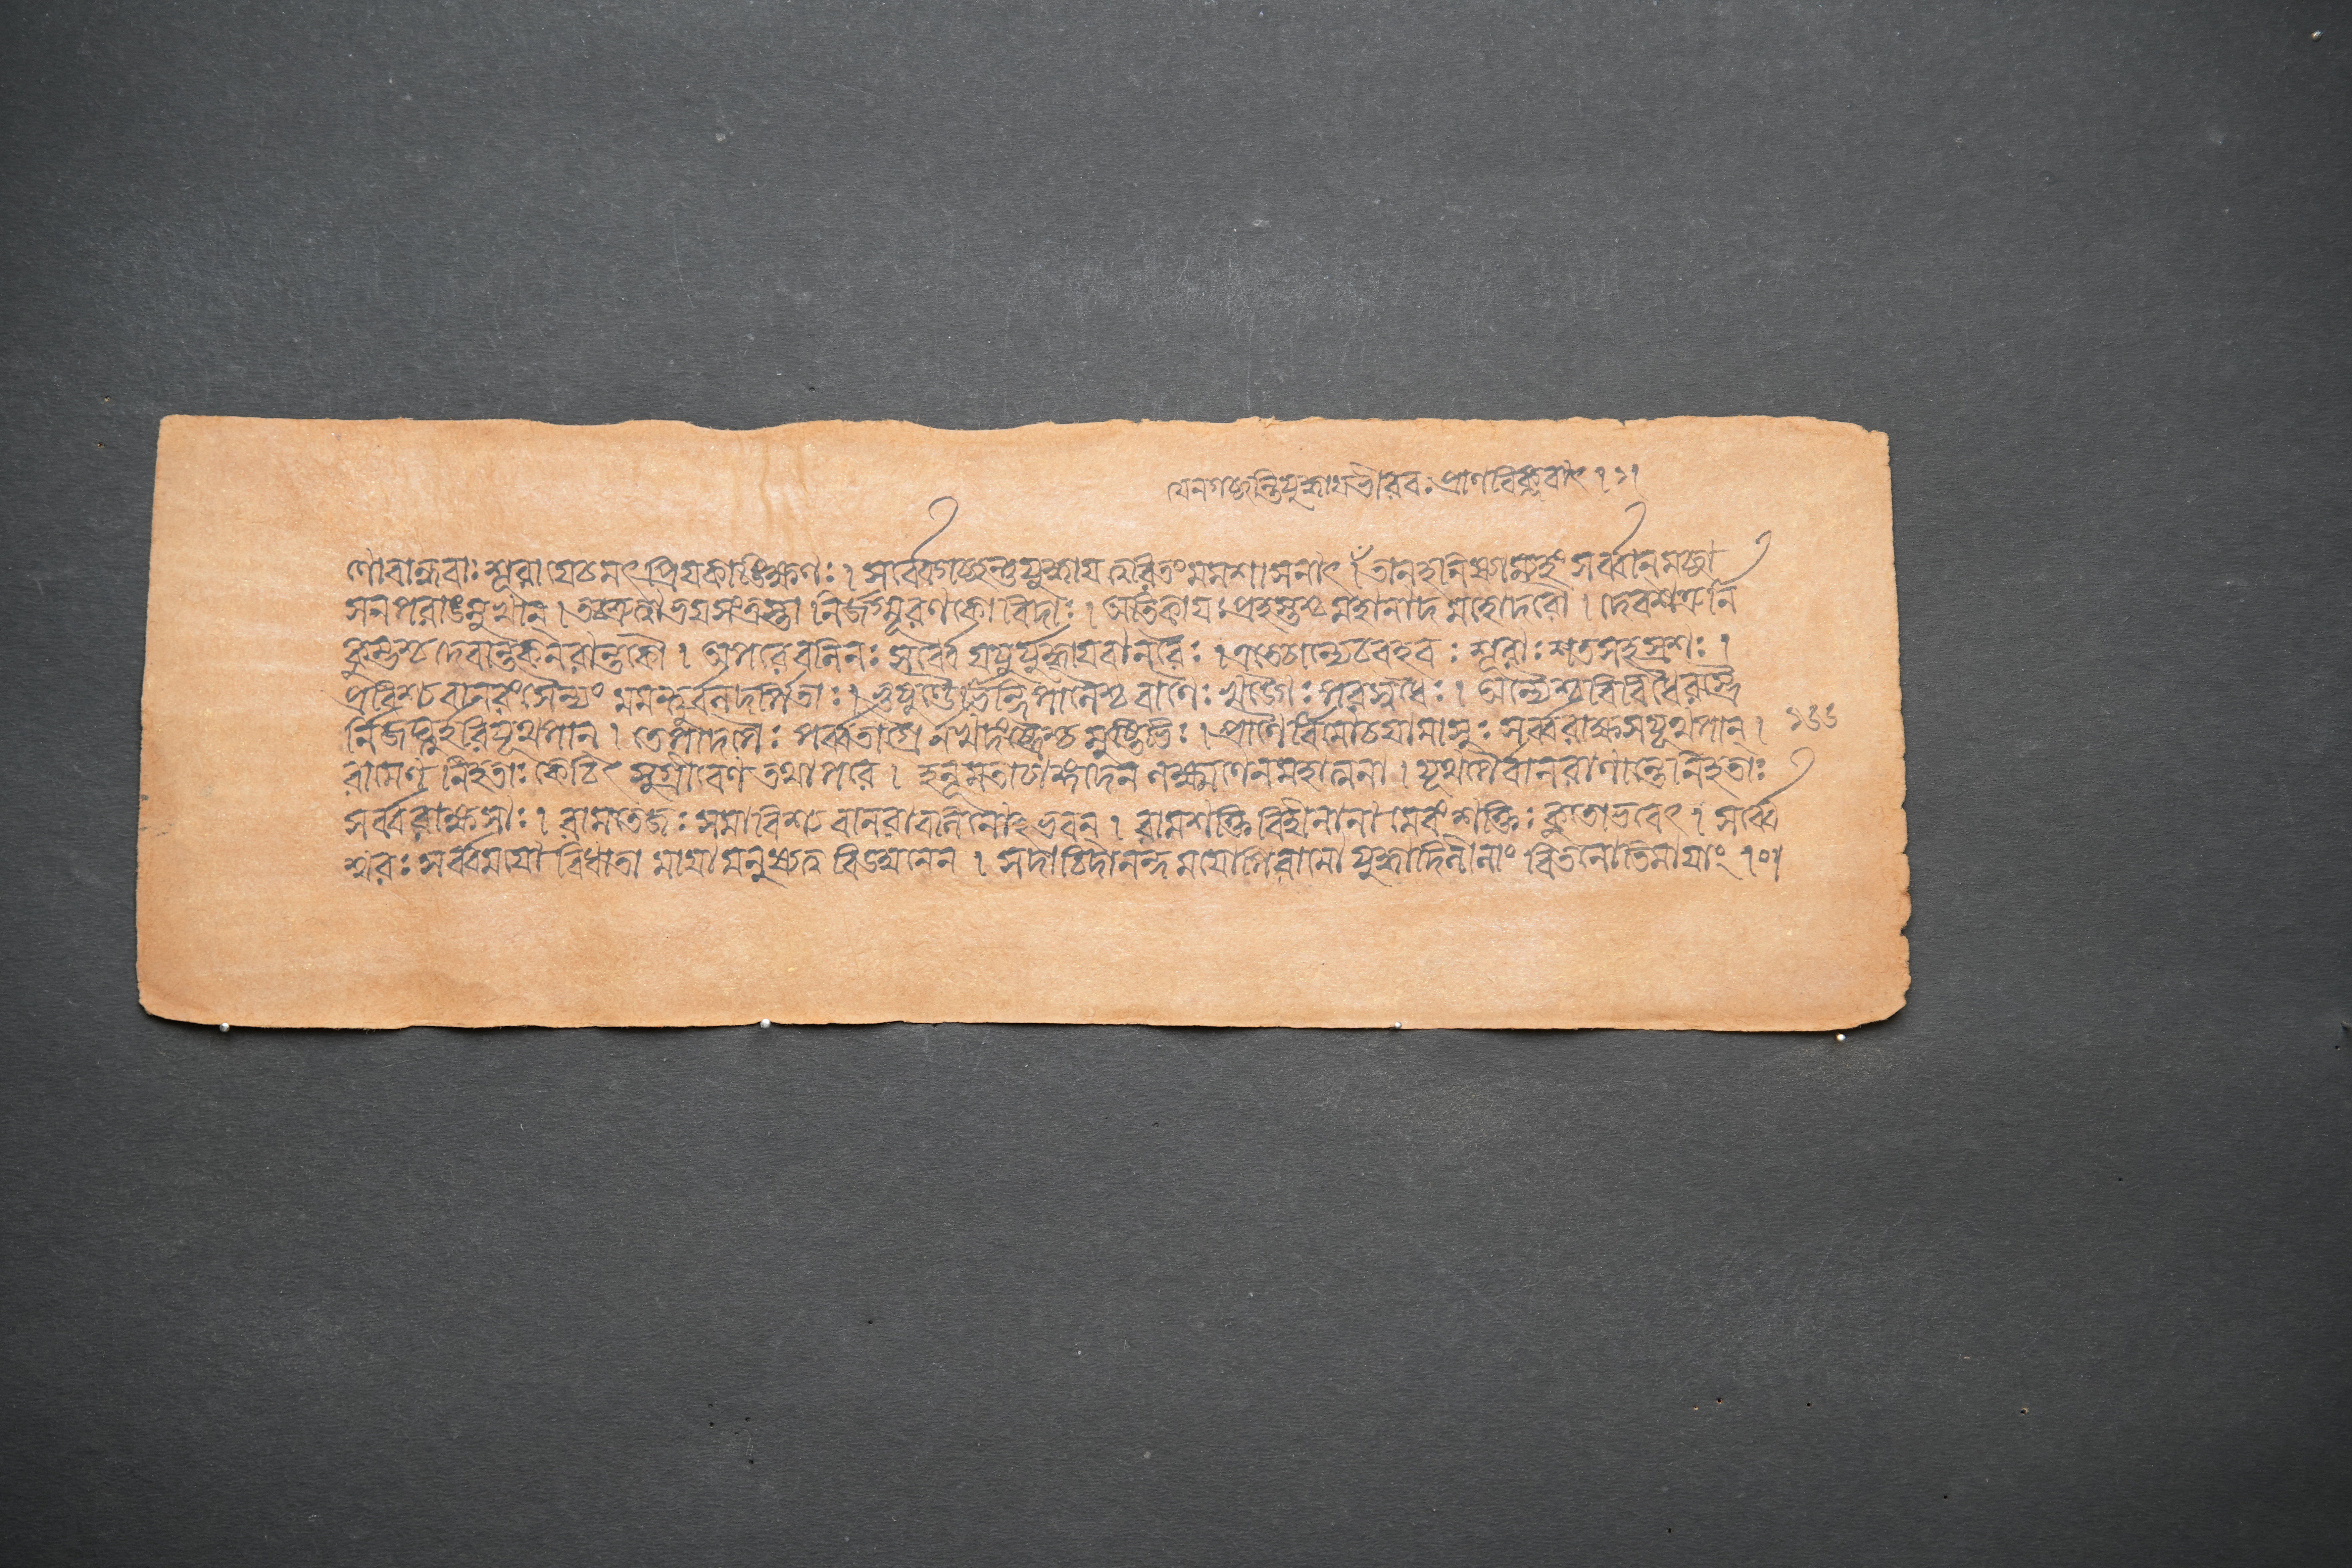 যেনগচ্ছন্তিযুদ্ধাযভীরবঃ প্রাণবিক্লবাৎ। ১।
ণোবান্ধবাঃ শূরা যেচমৎপ্রিযকাঙ্ক্ষিণঃ। সর্ব্বেগচ্ছন্তুযুদ্ধায ত্বরিতংমমশাসনাৎ। তানহনিষ্যাম্যহং সর্ব্বানমচ্ছা
সনপরাঙমুখান্। তচ্ছ্রুত্বাভযসংত্রস্তা নির্জগ্মূরণকোবিদাঃ। অতিকাযঃ প্রহস্তশ্চমহানাদমহোদরৌ। দেবশত্রুর্নি
কুম্ভশ্চদেবান্তকনরান্তকৌ। অপরেবলিনঃ সর্ব্বে যযুর্যুদ্ধাযবানরৈঃ। এতেচান্যেচবহবঃ শূরাঃ শতসহস্রশঃ।
প্রবিশ্যবানরংসৈন্যং মমন্থুর্ব্বলদর্পিতাঃ। ভুষুণ্ডীভিন্দিপালৈশ্চবাণৈঃ খড্গৈঃ পরসুধৈঃ। অন্যৈশ্চবিবিধৈরস্ত্রৈ
র্নিজঘ্নুর্হরিযূথপান্। তেপাদপৈঃ পর্ব্বতাগ্রৈর্নখদংষ্ট্রৈশ্চমুষ্টিভিঃ। প্রাণৈর্ব্বিমোচযামাসুঃ সর্ব্বরাক্ষসযূথপান্।
রামেণ নিহতাঃ কেচিৎ সুগ্রীবেণ তথাপরে। হনূমতাচাঙ্গদেন লক্ষ্মণেনমহাত্মনা। যূথপৈর্বানরাণান্তেনিহতাঃ
সর্ব্বরাক্ষসাঃ। রামতেজঃ সমাবিশ্যবানরাবলিনোঽভবন্। রামশক্তিবিহীনানামেবংশক্তিঃ কুতোভবেৎ। সর্ব্বে
শ্বরঃ সর্ব্বমযো বিধাতা মাযামনুষ্যত্ববিডম্বনেন। সদাচিদানন্দমযোপিরামো যুদ্ধাদিলীলাং বিতনোতিমাযাং।০।